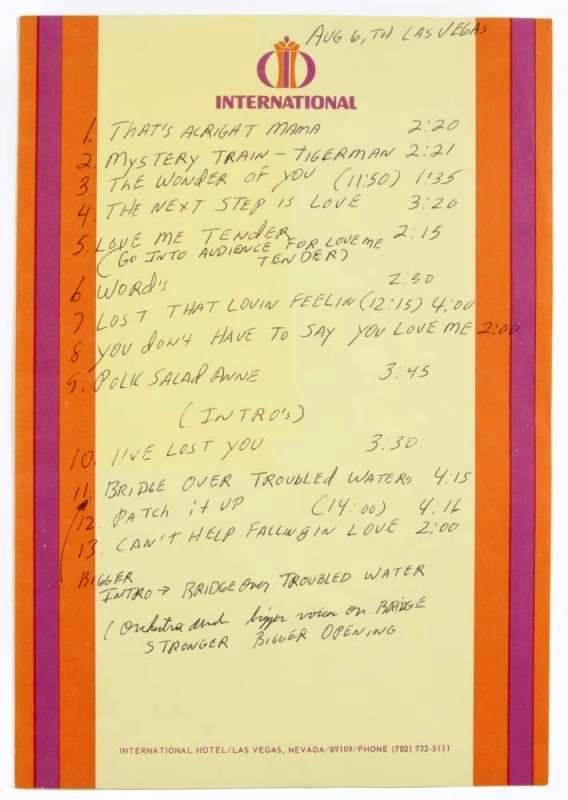 AUG 6, TH LAS VEGAS
INTERNATIONAL
1. THAT'S ALRIGHT MAMA 2:20
2. MYSTERY TRAIN - TIGERMAN 2:21
3 THE WONDER OF YOU (11:50) 1:35
4. THE NEXT STEP IS LOVE 3:20
5. LOVE ME TENDER 2:15
(GO INTO AUDIENCE FOR LOVE ME
TENDER)
6 WORD'S 2:30
7 LOST THAT LOVIN FEELIN (12:15) 4:00
8 YOU DON'T HAVE TO SAY YOU LOVE ME 2:00
9. POLK SALAD ANNE 3:45
(INTRO'S)
10. I'VE LOST YOU 3.30
11. BRIDGE OVER TROUBLED WATERS 4:15
12. PATCH IT UP (14:00) 4.16
13. CAN'T HELP FALLING IN LOVE 2:00
BIGGER
INTRO → BRIDGE OVER TROUBLED WATER
(Orchestra and bigger voice on BRIDGE
STRONGER BIGGER OPENING
INTERNATIONAL HOTEL/LAS VEGAS, NEVADA/89109/PHONE (702) 732-5111